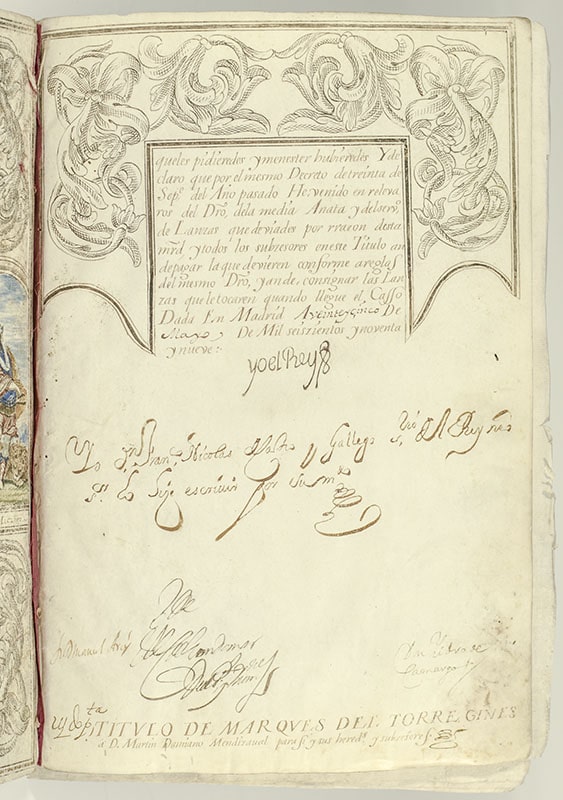 queles pidieredes y menester hubieredes Y de
claro que por el mesmo Decreto de treinta de
Sepᵉ del Año pasado He venido en releva
ros del Dr̃o, dela media Anata y del serv.º
de Lanzas que deviades por rrazon desta
mrd̃ y todos los subzesores en este Titulo an
de pagar la que devieren conforme a reglas
del mesmo Dr̃o, y an de consignar las Lan
zas que le tocaren quando llegue el Casso
Dada En Madrid A veinte y cinco De
Mayo, De Mil seiszientos y noventa
y nueve:
yo el Rey
Yo Dⁿ Fran.co Nicolas de Castro y Gallego s.rio del Rey nro
s.r lo fize escrivir por su m.do
Dⁿ Manuel Arias
TITVLO DE MARQVES DEL TORRE GINES
a D. Martin Damiano Mendizaual para si y sus hered.s y subcesores